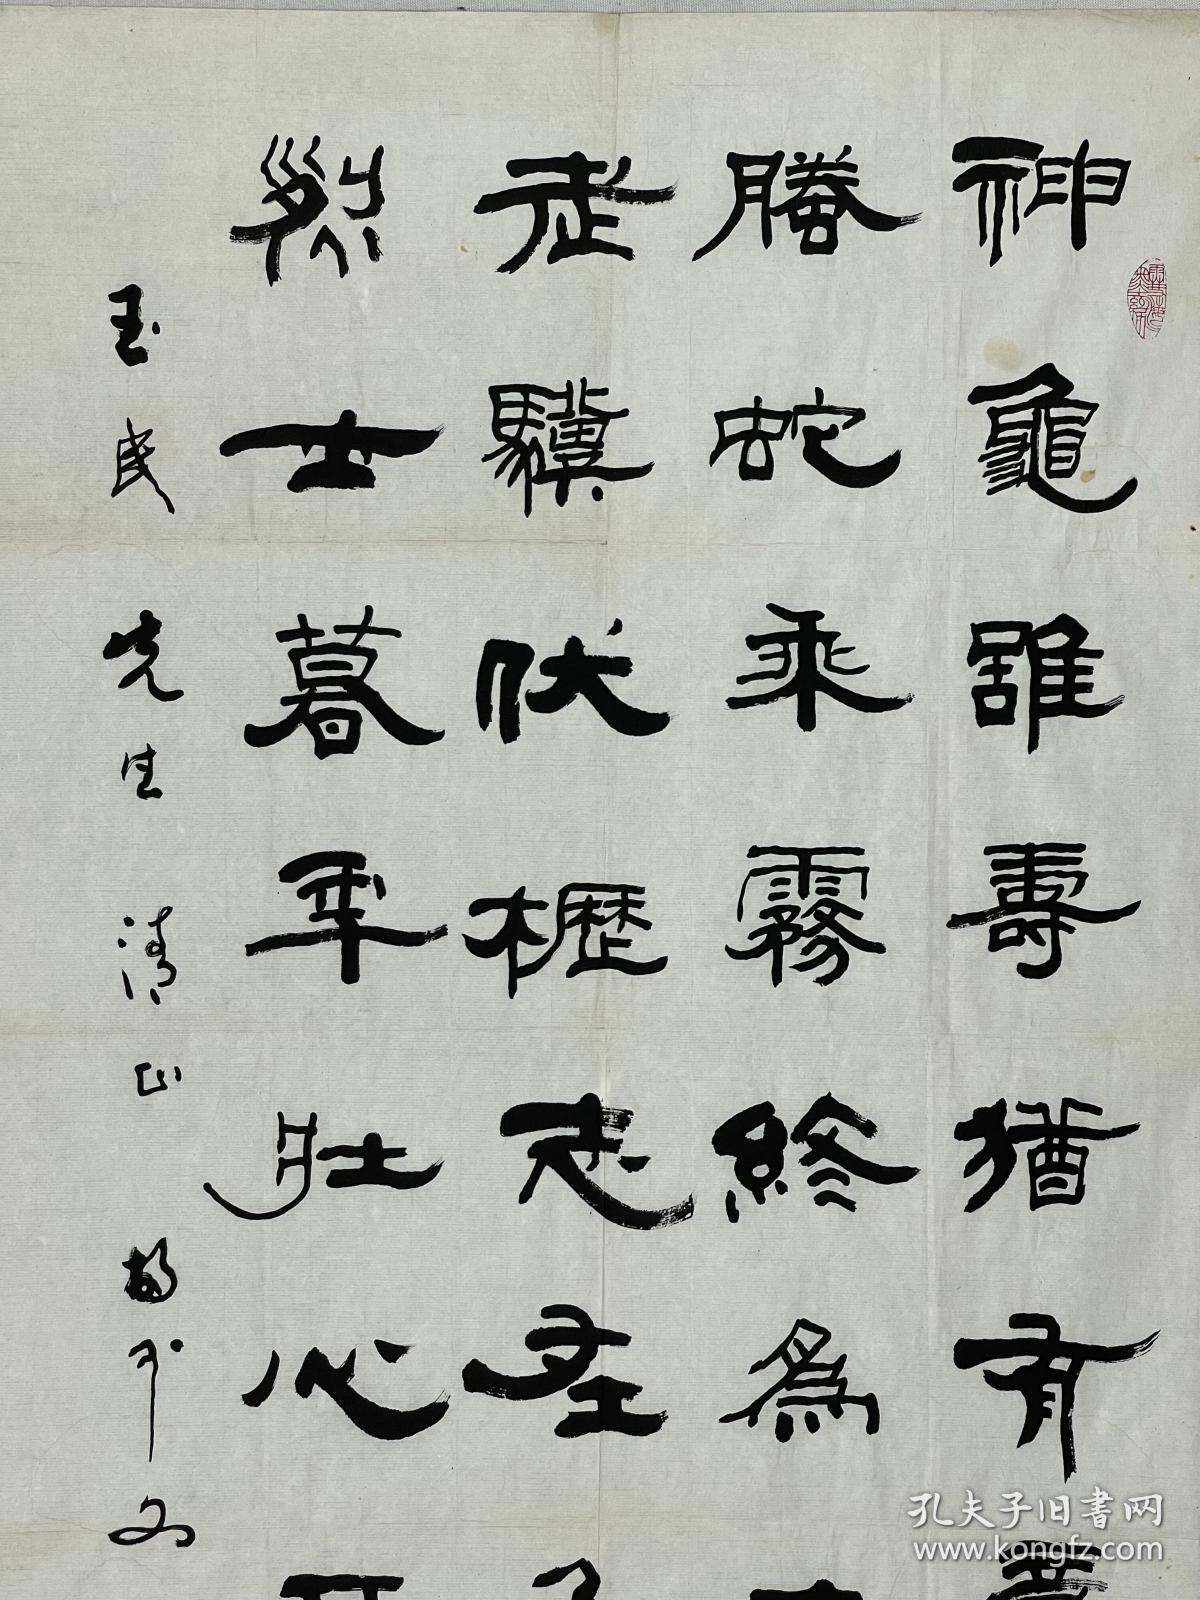 神龜雖壽猶有
騰蛇乘霧終為
老驥伏櫪志在
烈士暮年壯心
玉民先生清正
孔夫子旧书网
www.kongfz.com